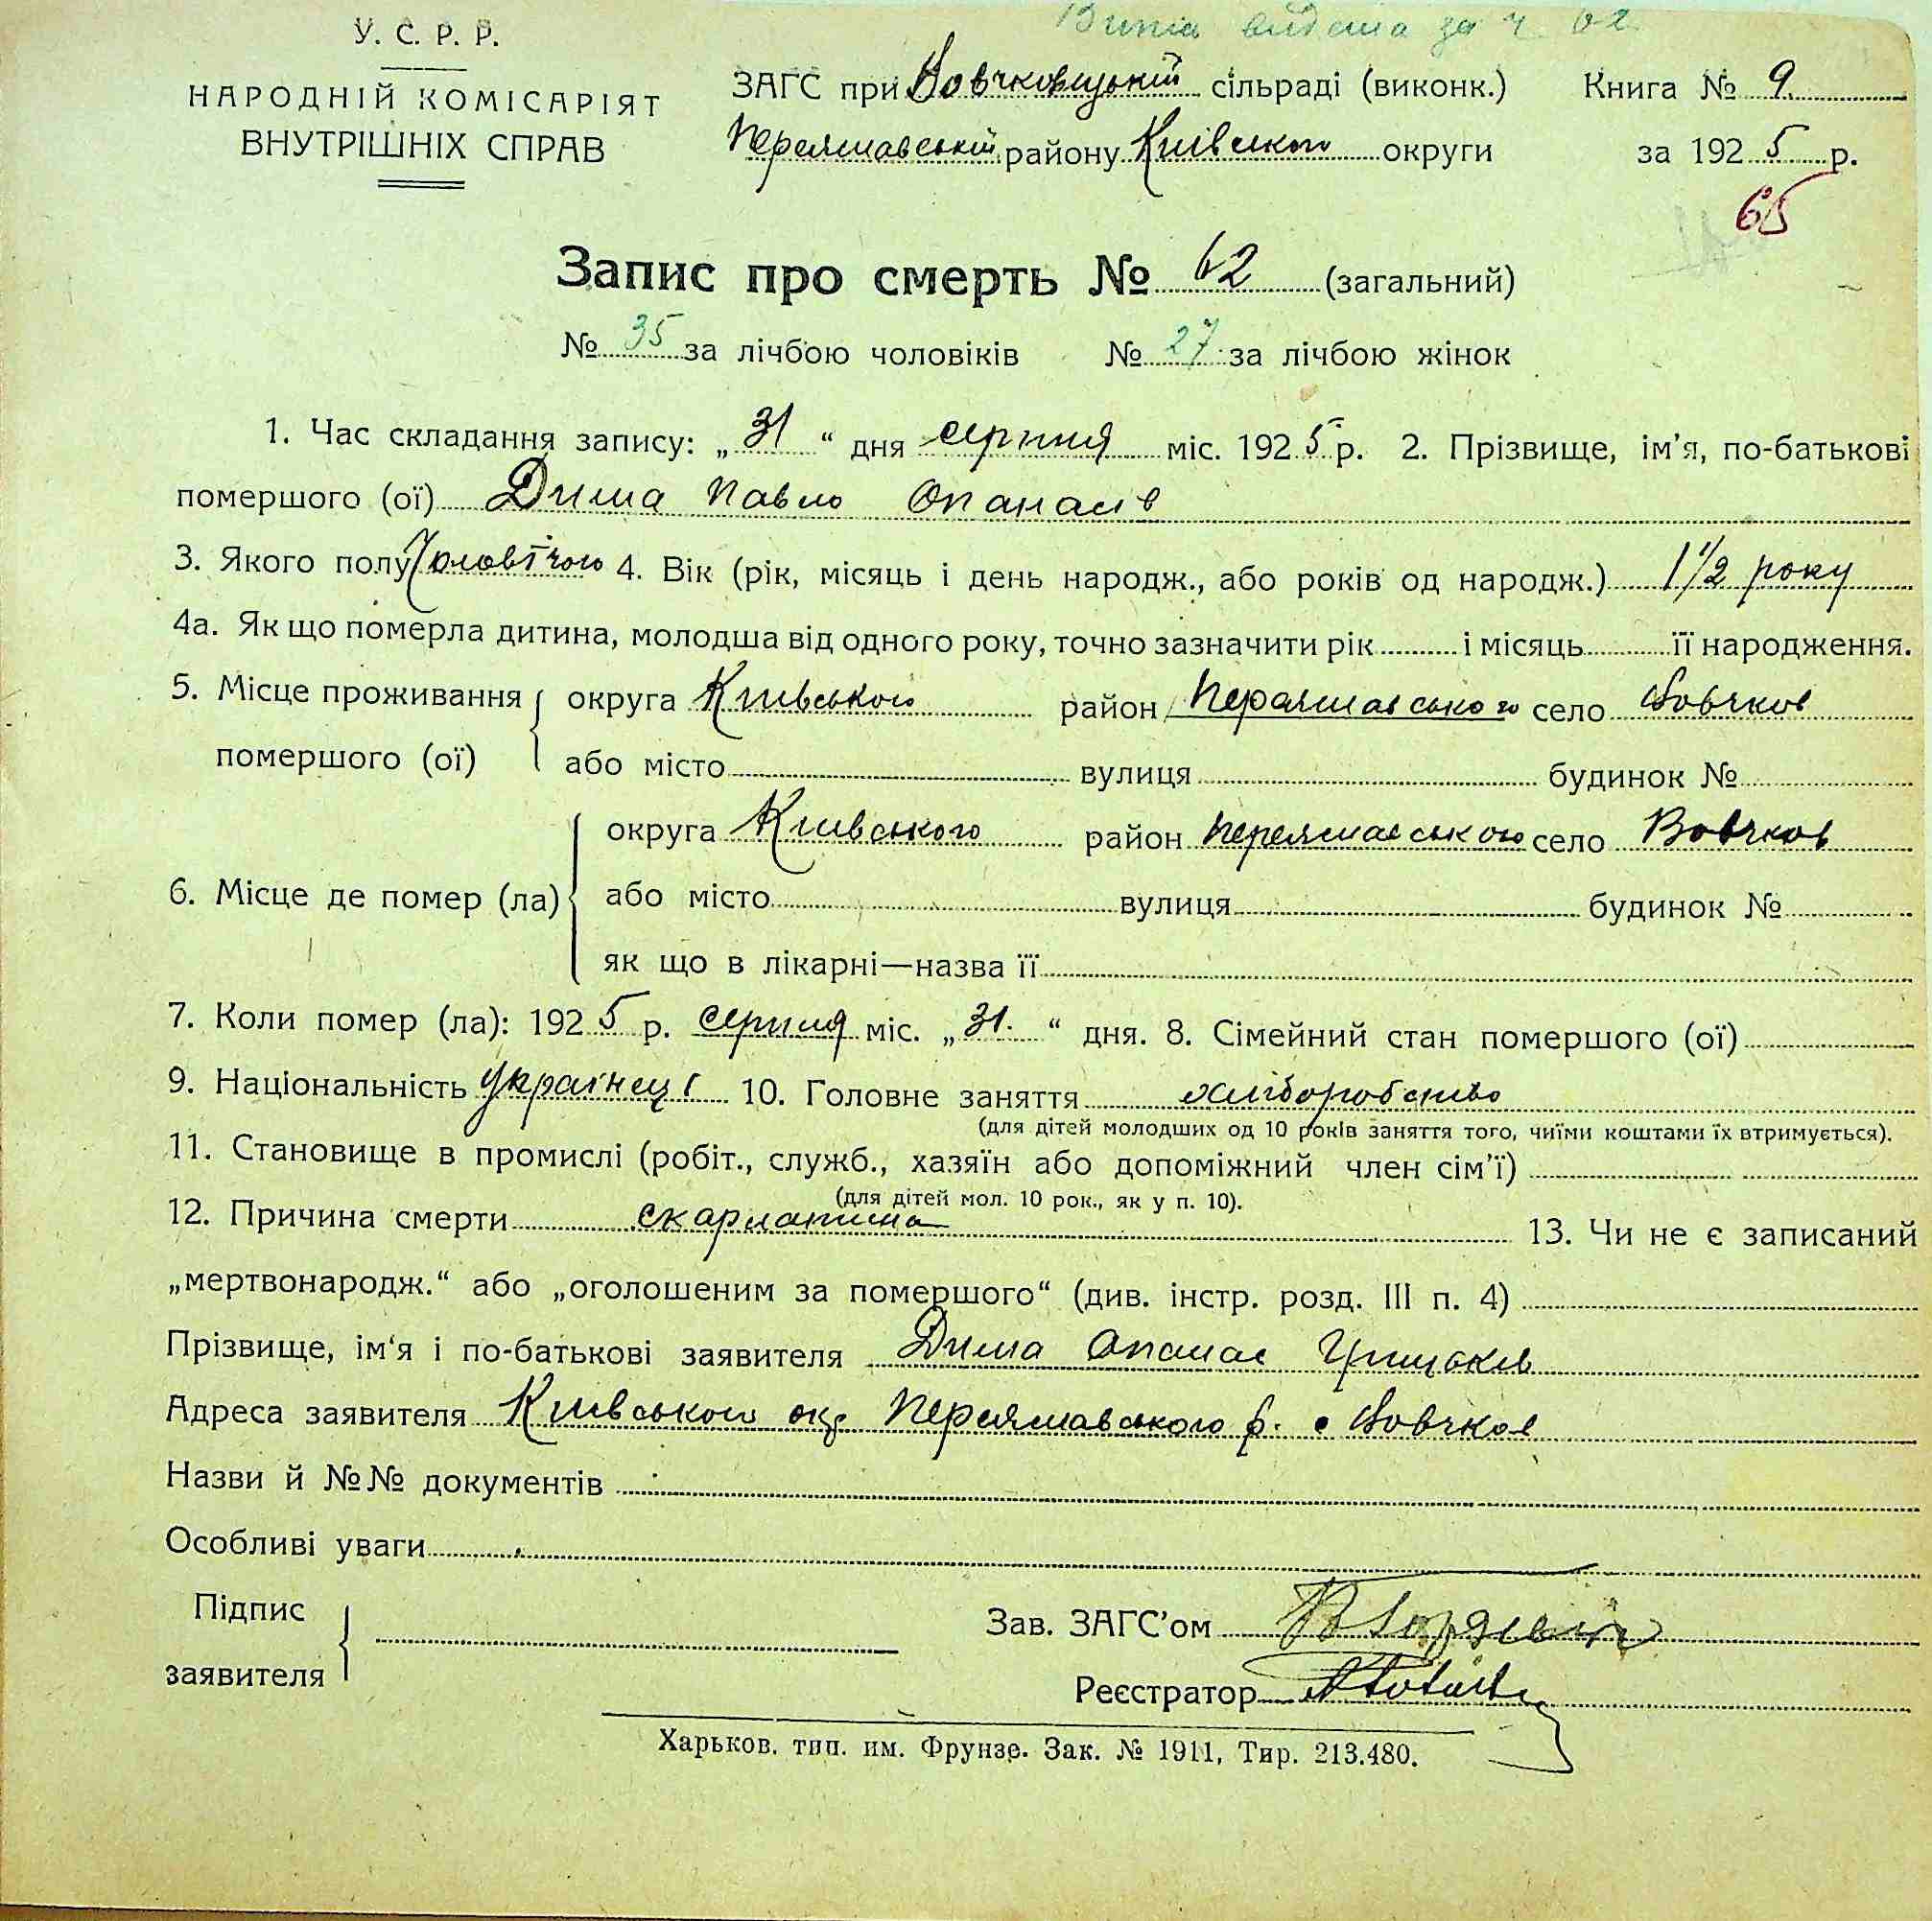 за ч. 62
У. С. Р. Р.
НАРОДНІЙ КОМІСАРІЯТ
ВНУТРІШНІХ СПРАВ
ЗАГС при Вовчковецькій сільраді (виконк.) Книга № 9
Переяславській району Київського округи за 1925 р.
65
Запис про смерть № 62 (загальний)
№ 35 за лічбою чоловіків № 27 за лічбою жінок
1. Час складання запису: „31“ дня серпня міс. 1925 р. 2. Прізвище, ім'я, по-батькові
помершого (ої) Дима Павло Опанасів
3. Якого полу Чоловічого 4. Вік (рік, місяць і день народж., або років од народж.) 1 1/2 року
4а. Як що померла дитина, молодша від одного року, точно зазначити рік і місяць її народження.
5. Місце проживання округа Київського район Переяславського село Вовчков
помершого (ої) або місто вулиця будинок №
округа Київського район Переяславського село Вовчков
6. Місце де помер (ла) або місто вулиця будинок №
як що в лікарні—назва її
7. Коли помер (ла): 1925 р. серпня міс. „31.“ дня. 8. Сімейний стан помершого (ої)
9. Національність українці 10. Головне заняття хліборобство
(для дітей молодших од 10 років заняття того, чиїми коштами їх втримується).
11. Становище в промислі (робіт., служб., хазяїн або допоміжний член сім'ї)
(для дітей мол. 10 рок., як у п. 10).
12. Причина смерти скарлатина 13. Чи не є записаний
„мертвонародж.“ або „оголошеним за помершого“ (див. інстр. розд. III п. 4)
Прізвище, ім'я і по-батькові заявителя Дима Опанас Грицьків
Адреса заявителя Київського окр Переяславського р. с Вовчков
Назви й №№ документів
Особливі уваги
Підпис
заявителя
Зав. ЗАГС'ом
Реєстратор
Харьков. тип. им. Фрунзе. Зак. № 1911, Тир. 213.480.